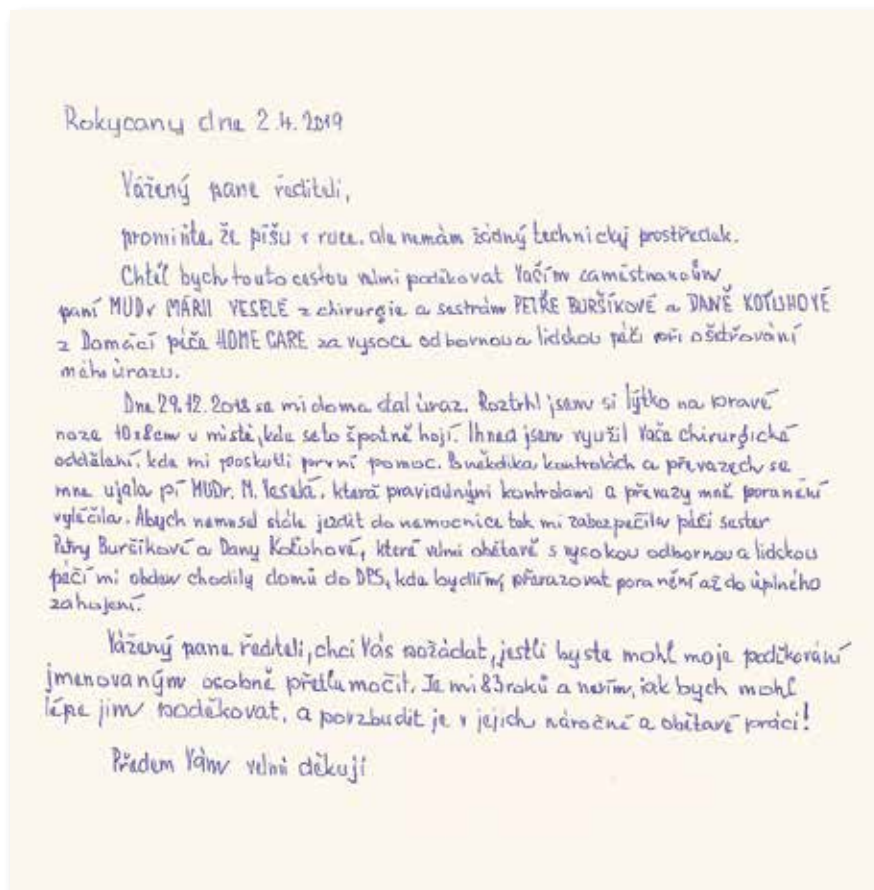 Rokycany dne 2.4.2019
Vážený pane řediteli,
promiňte, že píšu v ruce, ale nemám žádný technický prostředek.
Chtěl bych touto cestou velmi poděkovat Vaším zaměstnancům
paní MUDr MÁRII VESELÉ z chirurgie a sestrám PETŘE BURŠÍKOVÉ a DANĚ KOŤUHOVÉ
z Domácí péče HOME CARE za vysoce odbornou a lidskou péči při ošetřování
mého úrazu.
Dne 29.12.2018 se mi doma stal úraz. Roztrhl jsem si lýtko na pravé
noze 10x8cm v místě, kde se to špatně hojí. Ihned jsem využil Vaše chirurgické
oddělení, kde mi poskytli první pomoc. Po několika kontrolách a převazech se
mne ujala pí MUDr. M. Veselá, která pravidelnými kontrolami a převazy mně poranění
vyléčila. Abych nemusel stále jezdit do nemocnice tak mi zabezpečila péči sester
Petry Buršíkové a Dany Koťuhové, které velmi obětavě s vysokou odbornou a lidskou
péčí mi obden chodily domů do DPS, kde bydlím, převazovat poranění až do úplného
zahojení.
Vážený pane řediteli, chci Vás požádat, jestli byste mohl moje poděkování
jmenovaným osobně přetlumočit. Je mi 83 roků a nevím, jak bych mohl
lépe jim poděkovat, a povzbudit je v jejich náročné a obětavé práci!
Předem Vám velmi děkuji